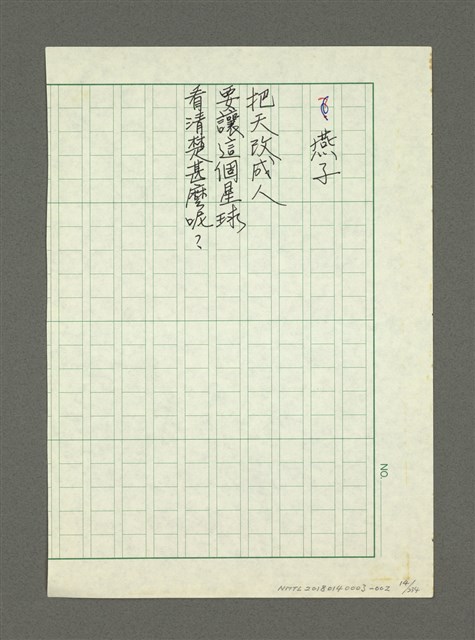 燕子
把天改成人
要讓這個星球
看清楚甚麼呢？
NO.
NMTL20180140003-002